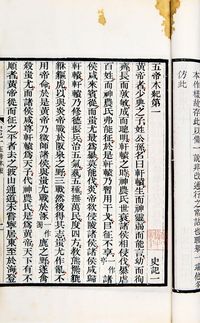 仿此
五帝本紀第一 史記一
黃帝者少典之子姓公孫名曰軒轅生而神靈弱而能言幼而徇
齊長而敦敏成而聰明軒轅之時神農氏世衰諸侯相侵伐暴虐
百姓而神農氏弗能征於是軒轅乃習用干戈以征不享諸侯
咸來賓從而蚩尤最爲暴莫能伐炎帝欲侵陵諸侯諸侯咸歸
軒轅軒轅乃修德振兵治五氣蓺五種撫萬民度四方教熊羆
貔貅貙虎以與炎帝戰於阪泉之野三戰然後得其志蚩尤作亂不
用帝命於是黃帝乃徵師諸侯與蚩尤戰於涿鹿之野遂禽
殺蚩尤而諸侯咸尊軒轅爲天子代神農氏是爲黃帝天下有不
順者黃帝從而征之平者去之披山通道未嘗寧居東至于海登